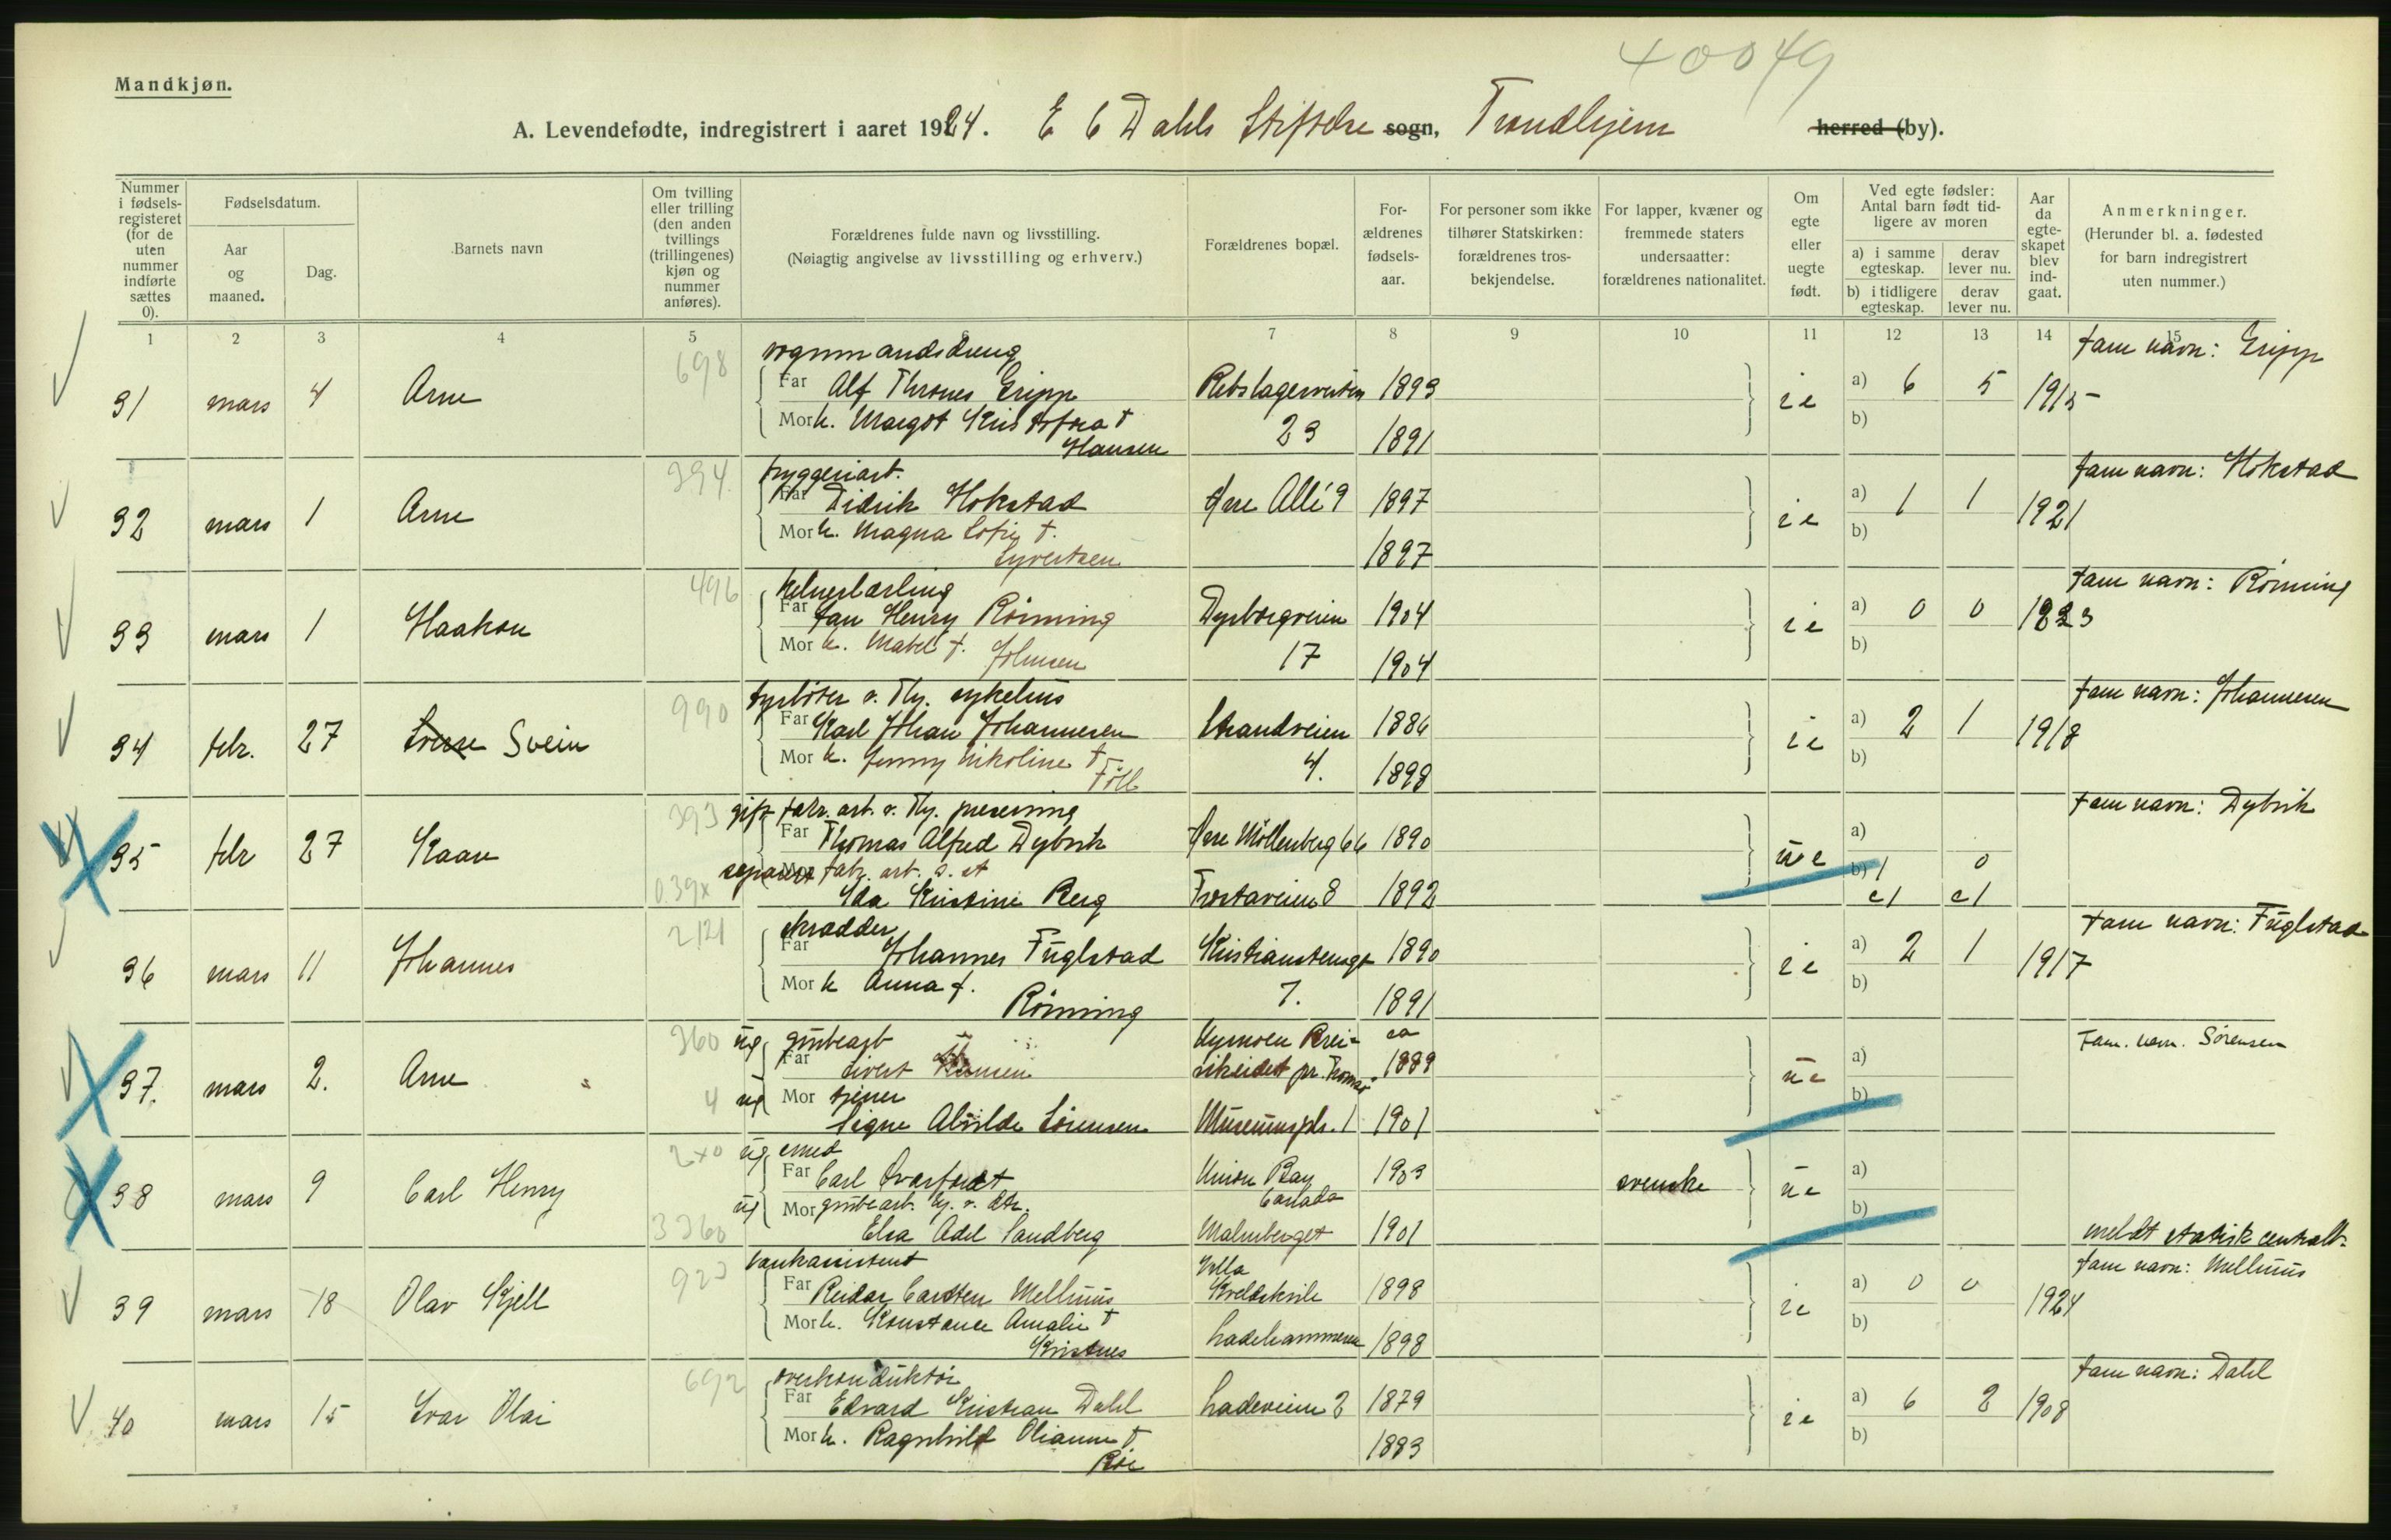 40049
Mandkjøn.
A. Levendefødte, indregistrert i aaret 1924. E C Dahls Stiftelse sogn, Trondhjem herred (by).
Nummer i fødselsregisteret (for de uten nummer indførte sættes 0).
Fødselsdatum.
Aar og maaned.
Dag.
Barnets navn
Om tvilling eller trilling (den anden tvillings (trillingenes) kjøn og nummer anføres).
Forældrenes fulde navn og livsstilling.
(Nøiagtig angivelse av livsstilling og erhverv.)
Forældrenes bopæl.
Forældrenes fødselsaar.
For personer som ikke tilhører Statskirken: forældrenes trosbekjendelse.
For lapper, kvæner og fremmede staters undersaatter: forældrenes nationalitet.
Om egte eller uegte født.
Ved egte fødsler: Antal barn født tidligere av moren
a) i samme egteskap. derav lever nu.
b) i tidligere egteskap. derav lever nu.
Aar da egteskapet blev indgaat.
Anmerkninger.
(Herunder bl. a. fødested for barn indregistrert uten nummer.)
1 2 3 4 5 6 7 8 9 10 11 12 13 14 15
698 vognmandsdreng fam navn: Gripp
31 mars 4 Arne Far Alf Thrones Gripp 1893 a) 6 5 1915
Mor h. Margot f. Hansen 23 1891 b)
394 bryggeriarb. fam navn: Hokstad
32 mars 1 Arne Far Didrik Hokstad Øvre Allé 9 1897 a) 1 1 1921
Mor h. Magna Sofie f. Syvertsen 1897 b)
496 kelnerlærling fam navn: Rönning
33 mars 1 Haakon Far Jan Henry Rönning Dyrborgveien 1904 a) 0 0 1923
Mor h. Mabel f. Johnsen 17 1904 b)
990 fyrböter v. Thj. sykehus fam navn: Johannesen
34 febr. 27 Sverre Svein Far Karl Johan Johannesen Strandveien 1886 a) 2 1 1918
Mor h. Jenny Nikoline f. Föll 4. 1898 b)
393 gift fabr. arb. v. Thj. preserving fam navn: Dybvik
35 febr 27 Kaare Far Thomas Alfred Dybvik Øvre Möllenberg 66 1890 ue a)
separert fabr. arb. s. st b) 1 0
Mor Ida Kristine Berg 8 1892 c 1 c 1
2121 skrædder fam navn: Fuglstad
36 mars 11 Johannes Far Johannes Fuglstad Kristianstensgt 1890 a) 2 1 1917
Mor h Anna f. Rönning 7. 1891 b)
360 ug grubearb ca Fam. navn. Sörensen
37. mars 2. Arne Far Sivert 1889 ue a)
4 ug Mor tjener b)
Signe Alvilde Sörensen Museumspls. 1 1901
ug smed
38 mars 9 Carl Henry Far Carl Union Bay Canada 1903 svenske ue a)
ug Mor grubearb. b)
Elsa Adel Sandberg Malmberget 1901
meldt statisk centralb.
923 bankassistent Villa fam navn: Mellhuus
39 mars 18 Olav Kjell Far Reidar Carsten Mellhuus Kveldshvile 1898 a) 0 0 1924
Mor h. Konstance Amalie f. Kristnes Ladehammeren 1898 b)
692 overkonduktör fam navn: Dahl
40 mars 15 Ivar Olai Far Edvard Kristian Dahl Ladeveien 2 1879 a) 6 2 1908
Mor h. Ragnhild Olianne f. Röe 1883 b)